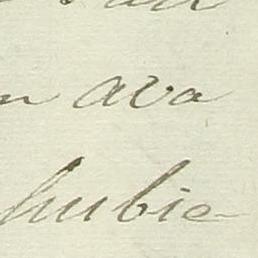 n ava
hubie-